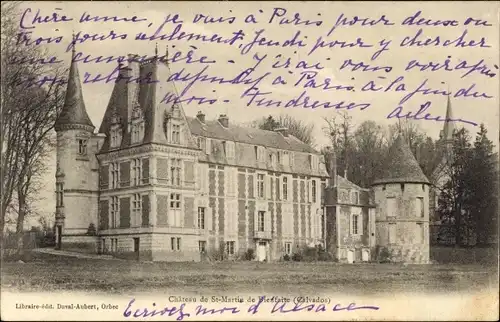 Chère Anne, je vais à Paris pour deux ou
trois jours seulement, Jeudi pour y chercher
une cuisinière - J'irai vous voir après
mon retour depuis à Paris à la fin du
mois - Tendresses
Château de St-Martin de Bienfaite (Calvados)
Librairie-édit. Duval-Aubert, Orbec
Ecrivez moi d'Alsace